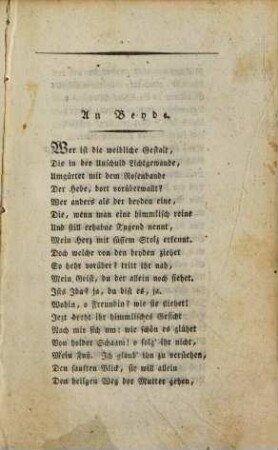 An Beyde.
Wer ist die weibliche Gestalt,
Die in der Unschuld Lichtgewande,
Umgürtet mit dem Rosenbande
Der Hebe, dort vorüberwallt?
Wer anders als der beyden eine,
Die, wenn man eine himmlisch reine
Und still erhabne Tugend nennt,
Mein Herz mit süssem Stolz erkennt.
Doch welche von den beyden ziehet
So hehr vorüber? tritt ihr nah,
Mein Geist, du der allein noch siehet.
Ists Ida? ja, du bist es, ja.
Wohin, o Freundin? wie sie fliehet!
Jezt dreht ihr himmlisches Gesicht
Nach mir sich um: wie schön es glühet
Von holder Schaam! o folg' ihr nicht,
Mein Fuß. Ich glaub' ihn zu verstehen,
Den sanften Blick, sie will allein
Den heilgen Weg der Mutter gehen,